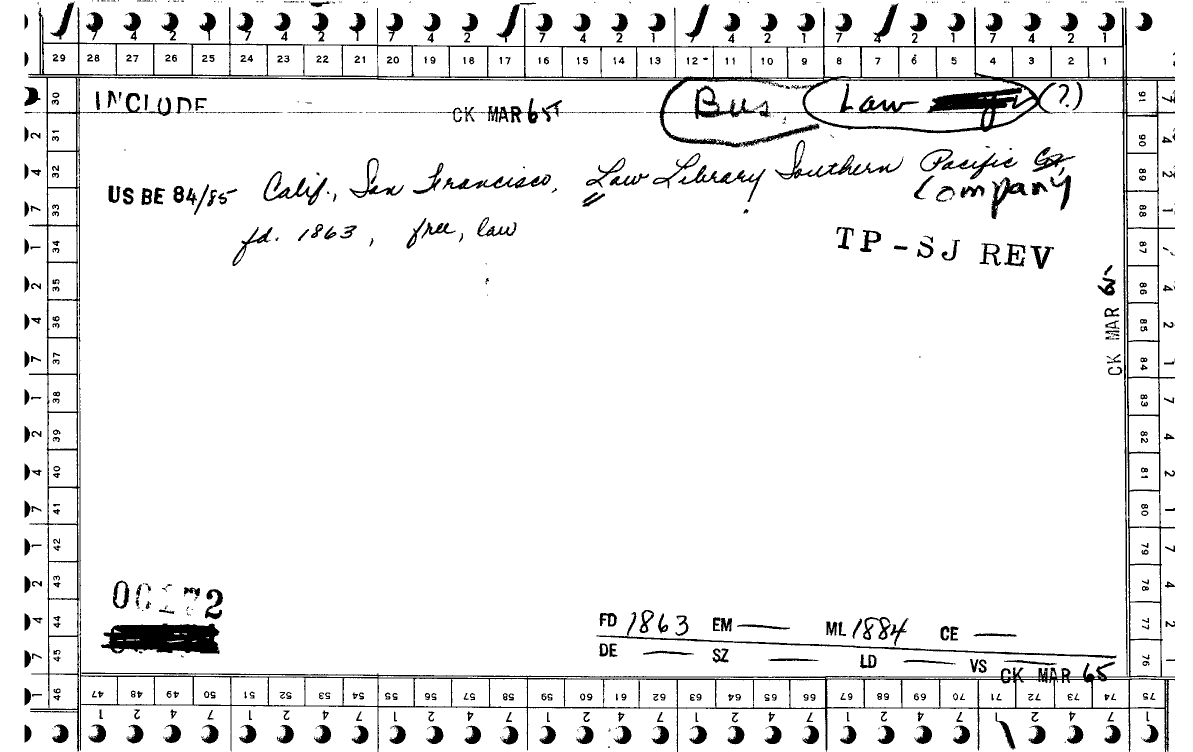 7 4 2 1 7 4 2 1 7 4 2 1 7 4 2 1 7 4 2 1 7 4 2 1 7 4 2 1
29 28 27 26 25 24 23 22 21 20 19 18 17 16 15 14 13 12 11 10 9 8 7 6 5 4 3 2 1
INCLUDE CK MAR 65 Bus. Law (?)
US BE 84/85 Calif., San Francisco, Law Library Southern Pacific Co.,
Company
fd. 1863, free, law
TP-SJ REV
CK MAR 65
30 31 32 33 34 35 36 37 38 39 40 41 42 43 44 45 46
91 90 89 88 87 86 85 84 83 82 81 80 79 78 77 76
FD 1863 EM — ML 1884 CE —
DE — SZ — LD — VS —
CK MAR 65
47 48 49 50 51 52 53 54 55 56 57 58 59 60 61 62 63 64 65 66 67 68 69 70 71 72 73 74 75
1 2 4 7 1 2 4 7 1 2 4 7 1 2 4 7 1 2 4 7 1 2 4 7 1 2 4 7 1